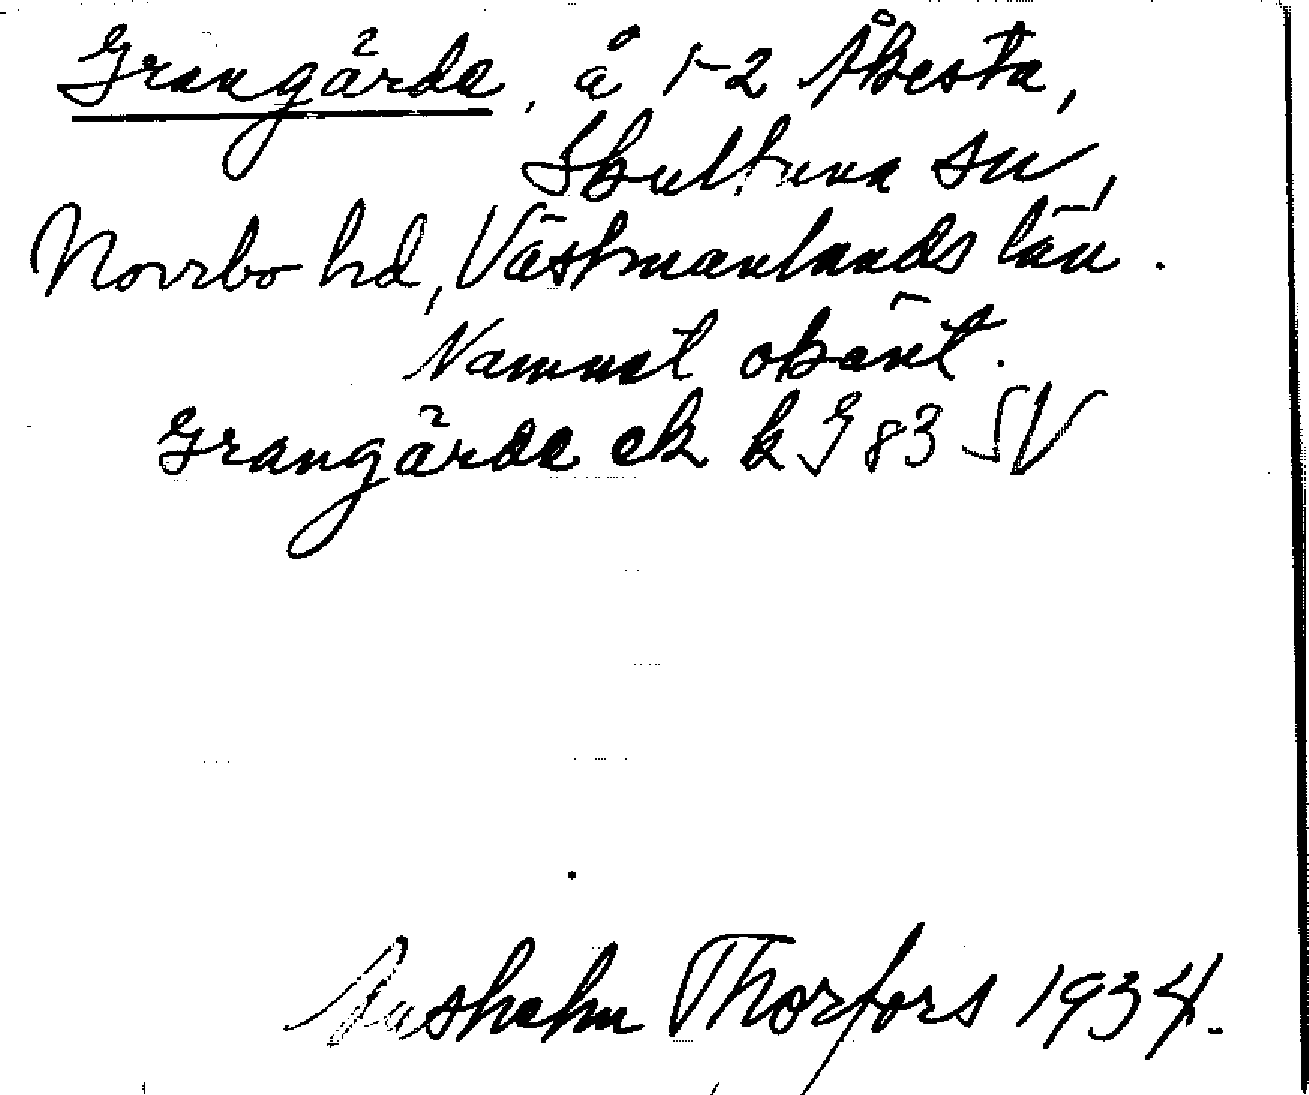 Grangärde, å 1-2 Åkesta,
Skultuna sn,
Norrbo hd, Västmanlands län.
Namnet okänt.
Grangärde ek k G 83 SV
Thorfors 1934.